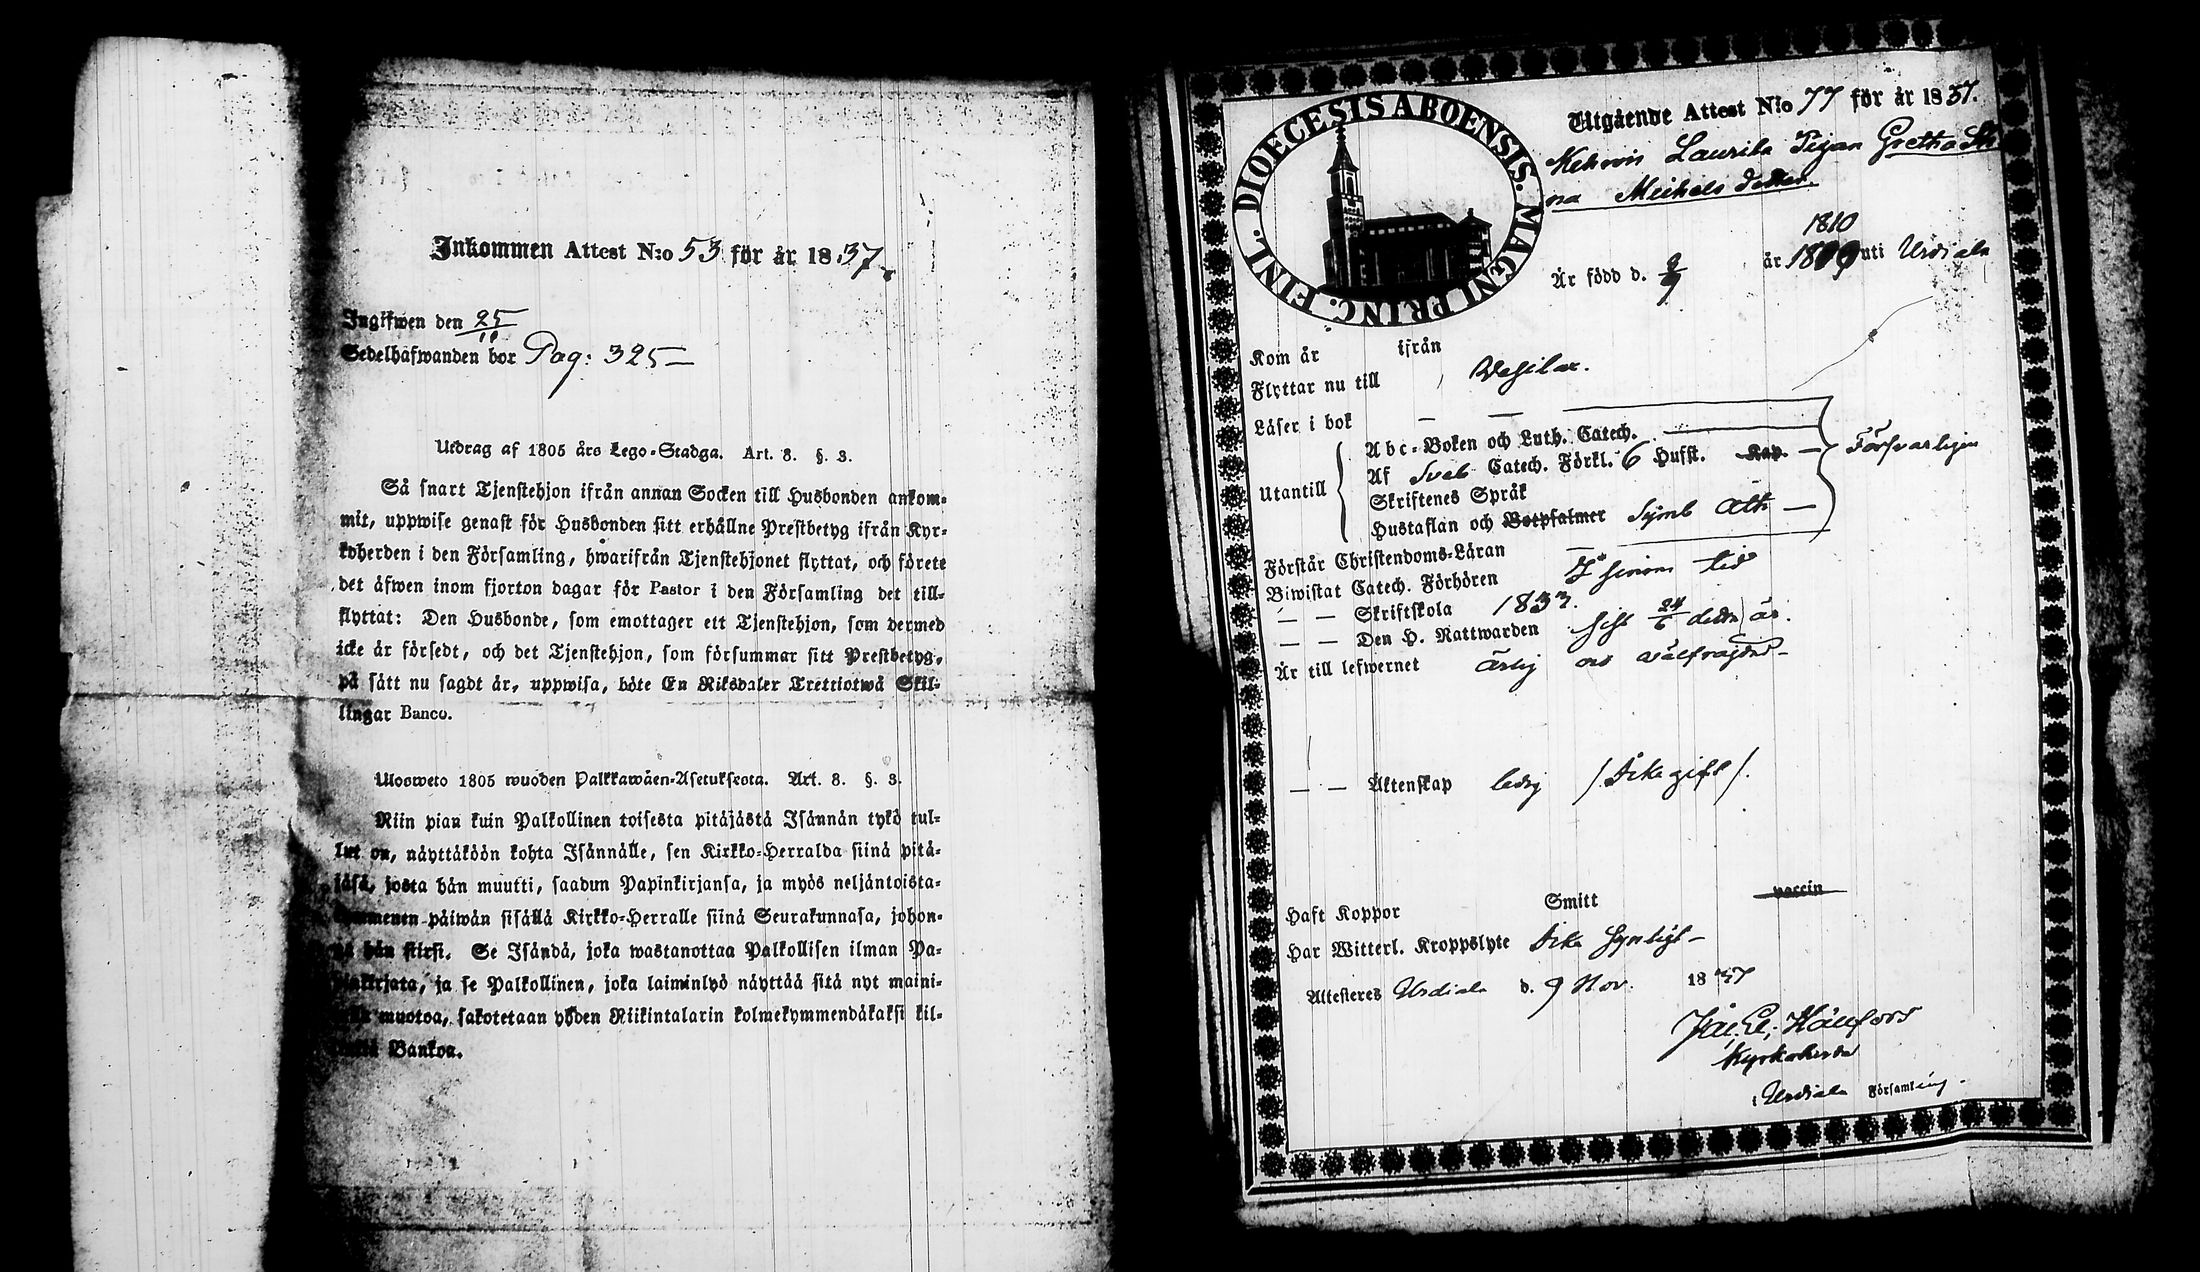 Inkommen Attest N:o 53 för år 1837.
Ingifwen den 25/11
Sedelhafwanden bor Pag: 325 —
Utdrag af 1805 års Lego-Stadga. Art. 8. §. 3.
Så snart Tjenstehjon ifrån annan Socken till Husbonden ankom-
mit, uppwise genast för Husbonden sitt erhållne Prestbetyg ifrån Kyr-
koherden i den Församling, hwarifrån Tjenstehjonet flyttat, och förete
det äfwen inom fjorton dagar för Pastor i den Församling det till-
flyttat: Den Husbonde, som emottager ett Tjenstehjon, som dermed
icke är försedt, och det Tjenstehjon, som försummar sitt Prestbetyg,
på sätt nu sagdt är, uppwisa, böte En Riksdaler Trettiotwå Skil-
lingar Banco.
Ulosweto 1805 wuoden Palkkawäen-Asetuksesta. Art. 8. §. 3.
Niin pian kuin Palkollinen toisesta pitäjästä Isännän tykö tul-
lut on, näyttäköön kohta Isännälle, sen Kirkko-Herralda siinä pitä-
jäsä, josta hän muutti, saadun Papinkirjansa, ja myös neljäntoista-
kymmenen päiwän sisällä Kirkko-Herralle siinä Seurakunnasa, johon-
ga hän siirsi. Se Isändä, joka wastanottaa Palkollisen ilman Pa-
pinkirjata, ja se Palkollinen, joka laiminlyö näyttää sitä nyt maini-
muotoa, sakotetaan yhden Riikintalarin kolmekymmendäkaksi kil-
Bankoa.
DIOECESIS ABOENSIS. MAGNI PRINC. FINL.
Utgående Attest N:o 77 för år 1837.
Kehrois Laurila Pigan Gretha Sti
na Michels dotter.
1810
Är född d. 9/9 år uti Urdiala
Kom år ifrån
Flyttar nu till Wesilax.
Läser i bok — —
Utantill
Abc-Boken och Luth. Catech.
Af Sveb Catech. Förkl. 6 Husst. Kap. — Försvarligen
Skriftenes Språk
Hustaflan och Botpsalmer Symb Ath —
Förstår Christendoms-Läran —
Biwistat Catech. Förhören I sinom tid
— — Skriftskola 1833.
— — Den H. Nattwarden sist 24/6 detta år.
Är till lefwernet ärlig och wälfrägdad —
— — Äktenskap ledig / Icke gift /.
Haft Koppor Smitt vaccin
Har Witterl. Kroppslyte Icke synligt —
Attesteres Urdiala d. 9 Nov. 1837
Hällfors
Kyrkoherde
i Urdiala Församling.